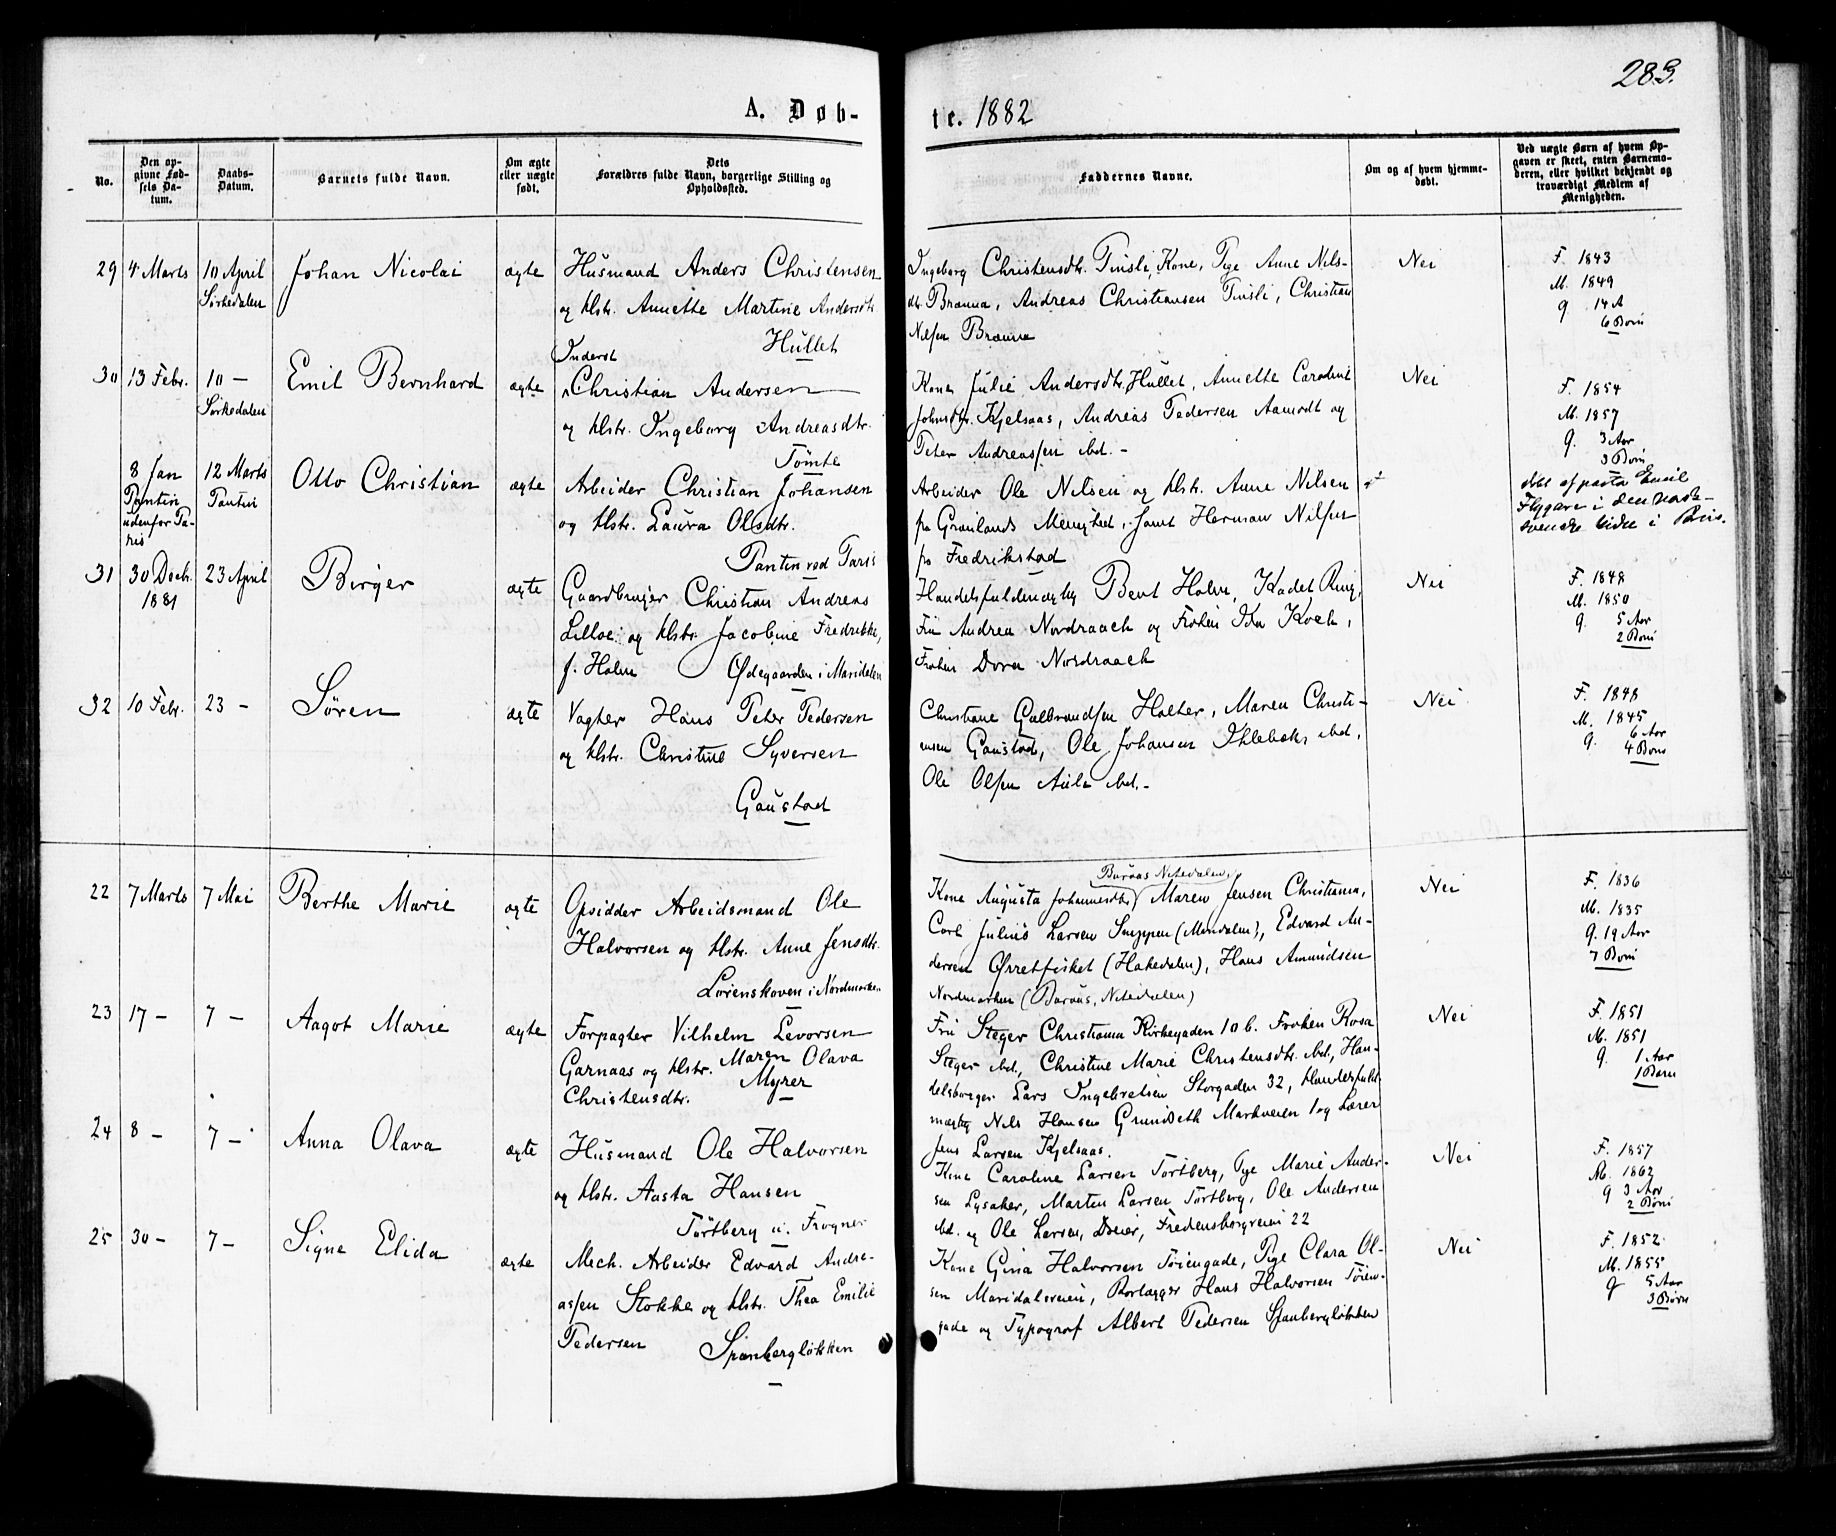 283.
A. Døb-
te. 1882
No.
Den op-
givne Fød-
sels Da-
tum.
Daabs-
Datum.
Barnets fulde Navn.
Om ægte
eller uægte
født.
Dets
Forældres fulde Navn, borgerlige Stilling og
Opholdssted.
Faddernes Navne.
Om og af hvem hjemme-
døbt.
Ved uægte Børn af hvem Op-
gaven er skeet, enten Barnemo-
deren, eller hvilket bekjendt og
troværdigt Medlem af
Menigheden.
29 4 Marts 10 April Johan Nicolai ægte Husmand Anders Christensen
Sørkedalen og Hstr. Annette Martine Andersdtr.
Hullet
Ingeborg Christensdtr. Tinsli, Kone, Pige Anne Nils-
dtr. Brænna, Andreas Christiansen Tinsli, Christian
Nilsen Brænna
Nei
F. 1843
M. 1849
g. 14 A
6 Børn
30 13 Febr. 10 — Emil Bernhard ægte Inderst
Christian Andersen
Sørkedalen og Hstr. Ingeborg Andreasdtr.
Tømte
Kone Julie Andersdtr. Hullet, Annette Caroline
Johnsdtr. Kjelsaas, Andreas Pedersen Aamodt og
Peter Andreassen ibd. -
Nei
F. 1854
M. 1857
g. 3 Aar
3 Børn
8 Jan 12 Marts Otto Christian ægte Arbeider Christian Johansen
Pantin Pantin og Hstr. Laura Olsdtr.
udenfor Pa-
ris
Pantin ved Paris
Arbeider Ole Nilsen og Hstr. Anne Nilsen
paa Grønlands Menighed, samt Herman Nilsen
paa Fredrikstad
døbt af pastor Emil
Flygare i den norsk-
svenske kirke i Paris.
31 30 Decb. 23 April Birger ægte Gaardbruger Christian Andreas
1881 Lilloe og Hstr. Jacobine Fredrikke,
f. Holm Ødegaarden i Maridalen
Handelsfuldmægtig Bent Holm, Kadet Ring,
Fru Andrea Nordraach og Frøken Ida Koch,
Frøken Dora Nordraach
Nei
F. 1848
M. 1850
g. 5 Aar
2 Børn
32 10 Febr. 23 - Søren ægte Vagter Hans Peter Pedersen
og Hstr. Christine Syversen
Gaustad
Christiane Gulbrandsen Holter, Maren Christi-
ensen Gaustad, Ole Johansen Iklebæk, ibd,
Ole Olsen Aule ibd. -
Nei
F. 1848
M. 1845
g. 6 Aar
4 Børn
22 7 Marts 7 Mai Berthe Marie ægte Opsidder Arbeidsmand Ole
Halvorsen og Hstr. Anne Jensdtr.
Lørenskoven i Nordmarken
Buraas Nitedalen,
Kone Augusta Johannesdtr. Maren Jensen Christiania,
Carl Julius Larsen Snippen (Maridalen), Edvard An-
dersen Ørretfisket (Hakedalen), Hans Amundsen
Nordmarken (Buraas, Nitedalen)
Nei
F. 1836
M. 1835
g. 19 Aar
7 Børn
23 17 — 7 — Aagot Marie ægte Forpagter Vilhelm Levorsen
Garnaas og Hstr. Maren Olava
Christensdtr. Myrer
Fru Steger Christiania Kirkegaden 10 b. Frøken Rosa
Steger ibd., Christine Marie Christensdtr. ibd., Han-
delsborger Lars Ingebretsen Storgaden 32, Handelsfuld-
mægtig Nils Hansen Grundseth Markveien 1 og Lærer
Jens Larsen Kjelsaas.
Nei
F. 1851
M. 1851
g. 1 Aar
1 Barn
24 8 — 7 — Anna Olava ægte Husmand Ole Halvorsen
og Hstr. Aasta Hansen
Tørtberg u. Frogner
Kone Caroline Larsen Tørtberg, Pige Marie Ander-
sen Lysaker, Marten Larsen Tørtberg, Ole Andersen
ibd. og Ole Larsen, Dreier, Fredensborgveien 22
Nei
F. 1857
M. 1862
g 3 Aar
2 Børn
25 30 — 7 — Signe Elida ægte Mech. Arbeider Edvard Andre-
assen Stokke og Hstr. Thea Emilie
Pedersen Spanbergløkken
Kone Gina Halvorsen Tøiengade, Pige Clara Ol-
sen Maridalsveien, Rørlægger Hans Halvorsen Tøien-
gade og Typograf Albert Pedersen Spanbergløkken
Nei
F. 1852
M. 1855
g 5 Aar
3 Børn